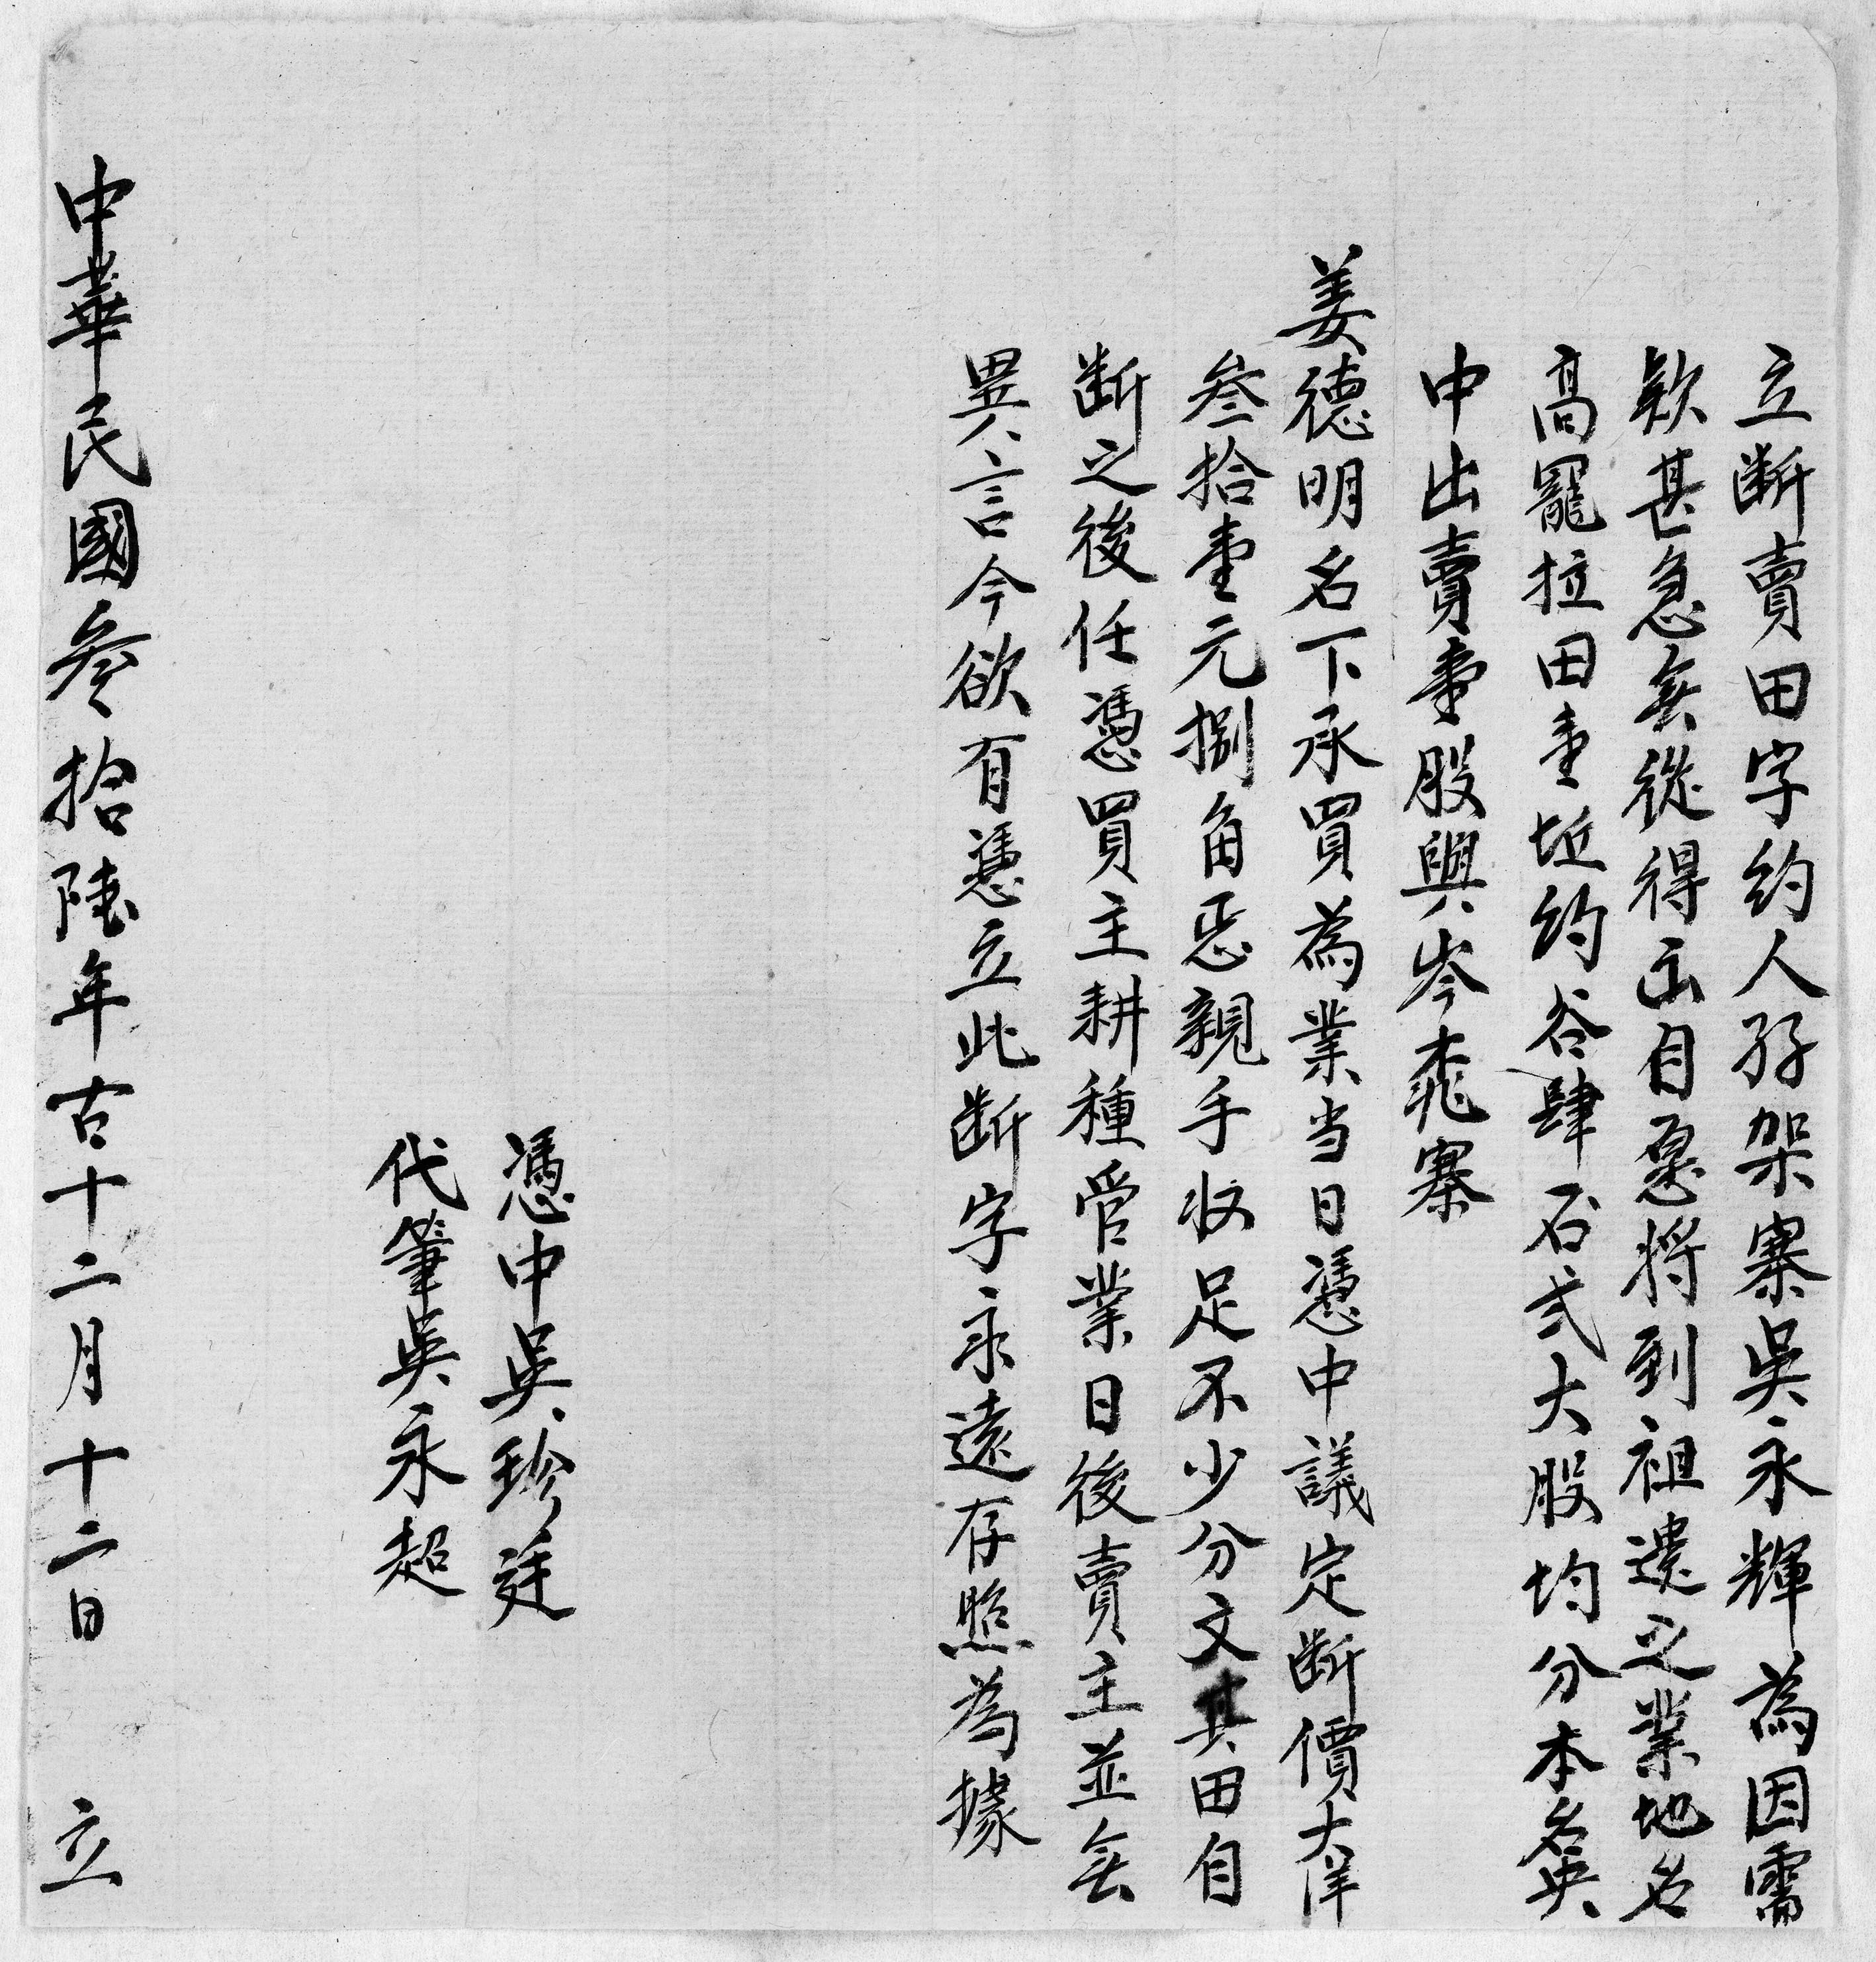 立断賣田字約人孖架寨吳永輝為因需
欵甚急無從得出自愿將到祖遗之業地名
髙罷拉田壹坵約谷肆石弍大股均分本名央
中出賣壹股與岑𣓀寨
姜德明名下承買為業当日憑中議定断價大洋
叁拾壹元捌角恶親手收足不少分文其田自
断之後任憑買主耕種管業日後賣主並無
異言今欲有憑立此断字永遠存照為據
憑中吳珍廷
代筆吳永超
中華民國叁拾陸年古十二月十二日 立